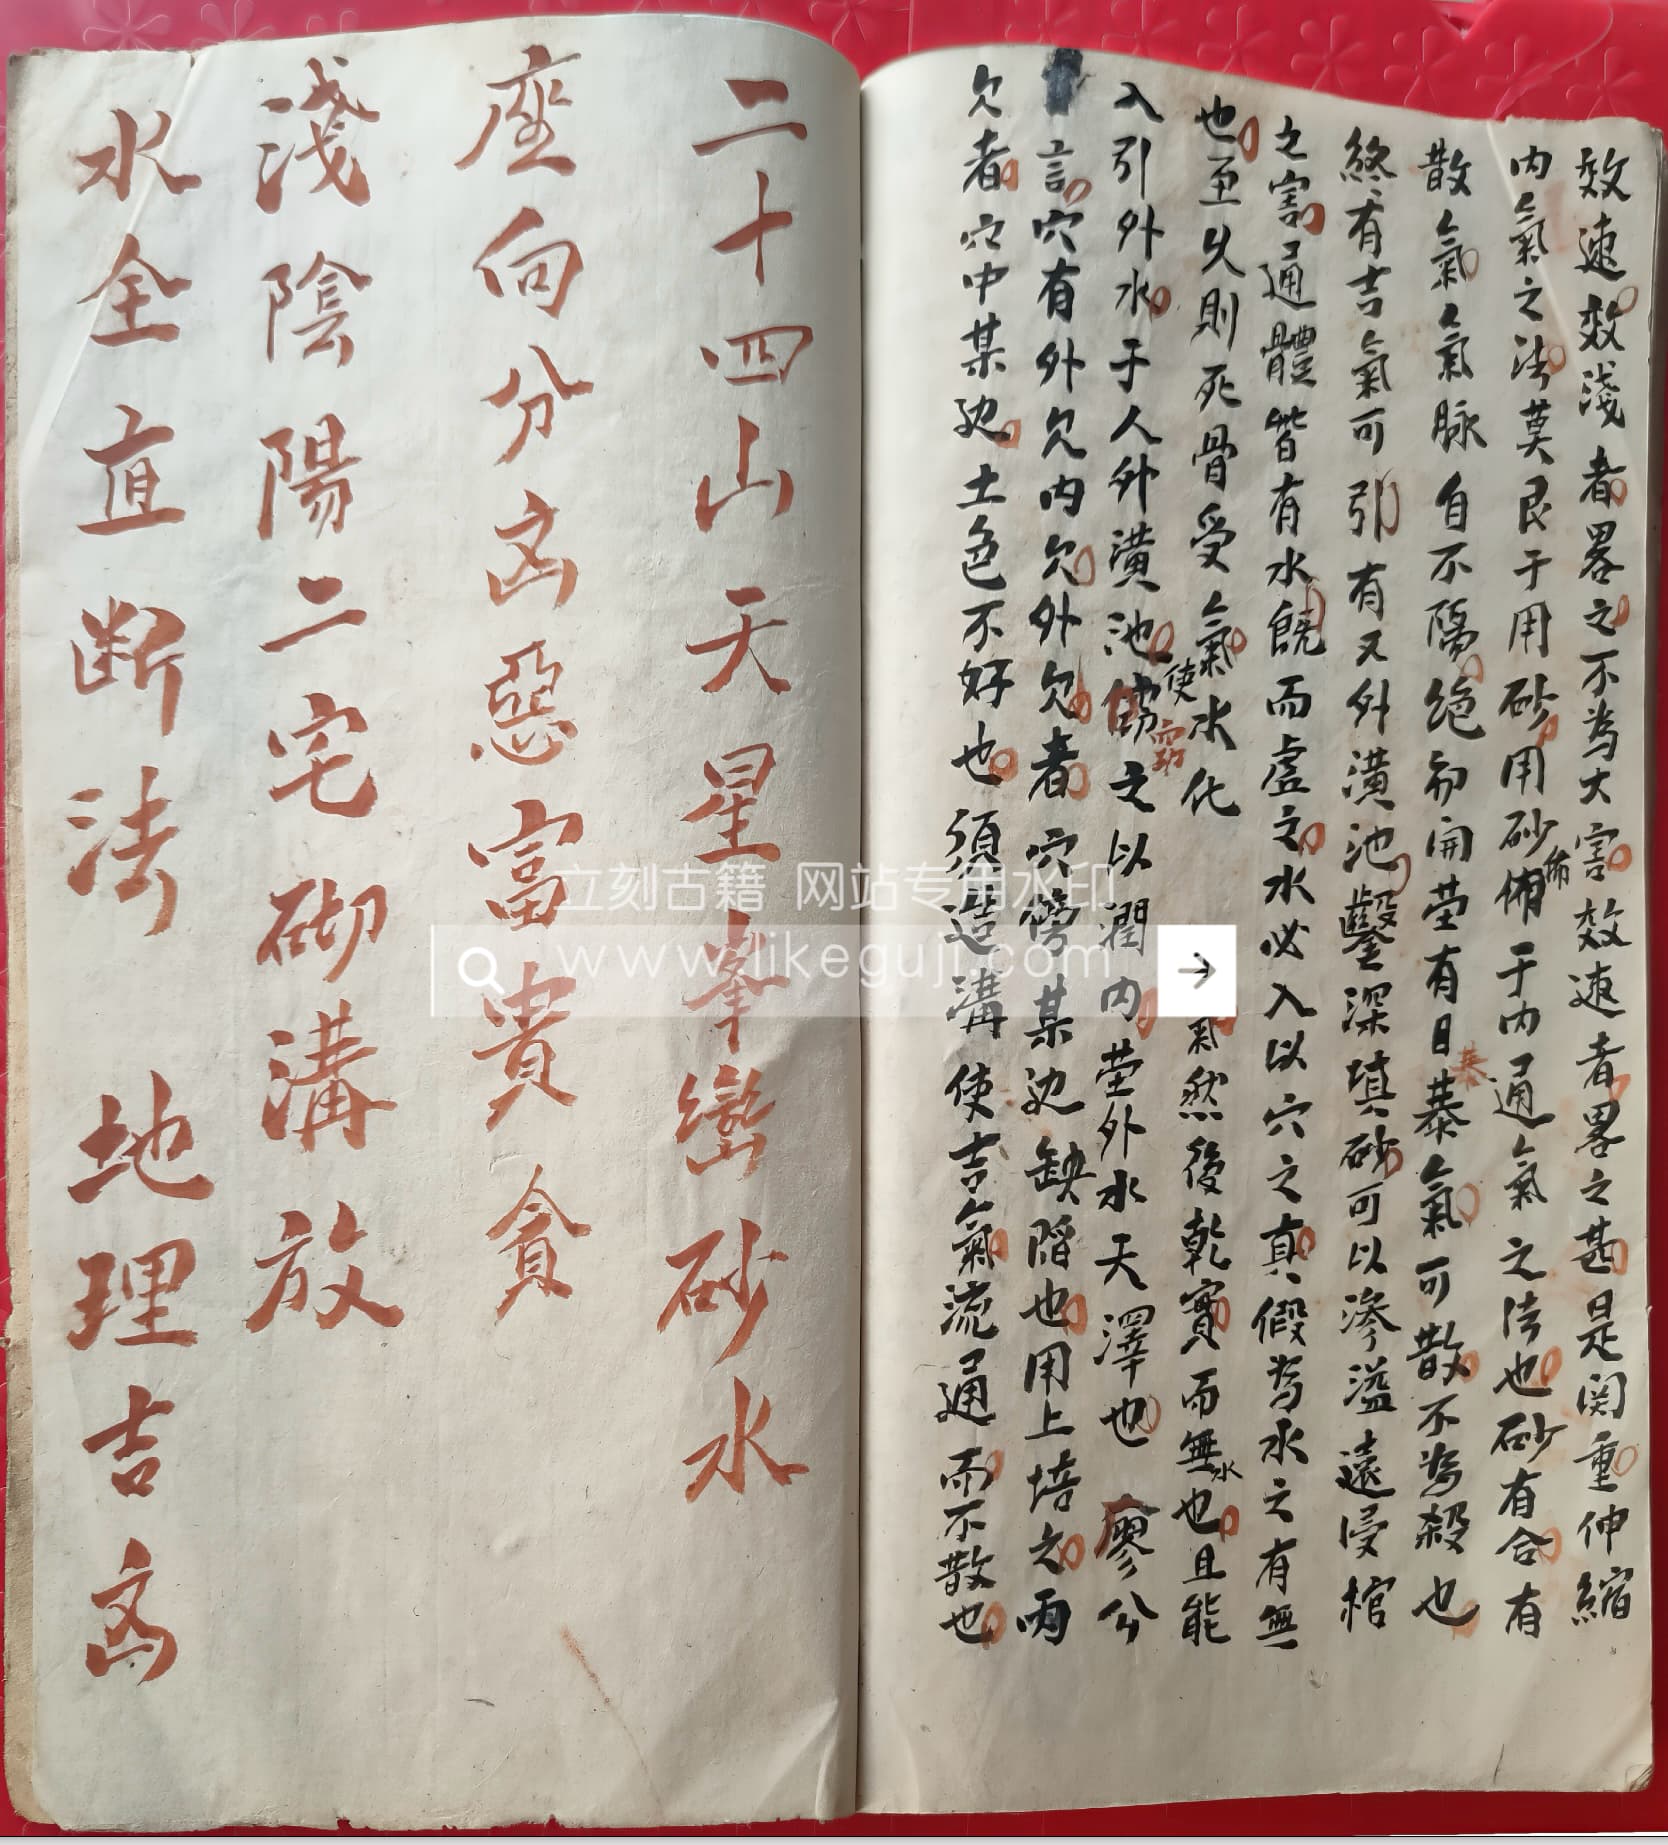 效速效淺者畧之不为大害效速者畧之甚是関重伸縮
内氣之法莫良于用砂用砂備于内通氣之法也砂有合有
散氣氣脉自不隔绝初開茔有日暴氣可散不为殺也
終有吉氣可引有又外潢池鑿深填砂可以滲溢遠浸棺
之害通體皆有水饒而虛之水必入以穴之真假为水之有無
也至久則死骨受氣水化氣然後乾實而無水也且能
入引外水于人外潢池使之以潤内茔外水天澤也 廖公
言穴有外欠内欠外欠者穴傍某边缺陷也用土培之内
欠者穴中某边土色不好也須造溝使吉氣流通而不散也
二十四山天星峯巒砂水
座向分凶惡富貴貪
淺陰陽二宅砌溝放
水全直断法 地理吉凶
立刻古籍 网站专用水印
www.likeguji.com